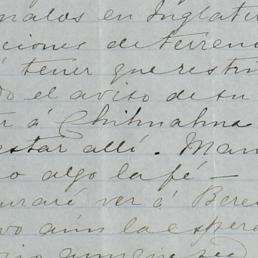 nalos en Inglater
ciones de terreno
á tener que restri
do el aviso de su
á Chihuahua
estar allí. Man
o algo la fé —
uraré ver á Bere
vo aún la espera